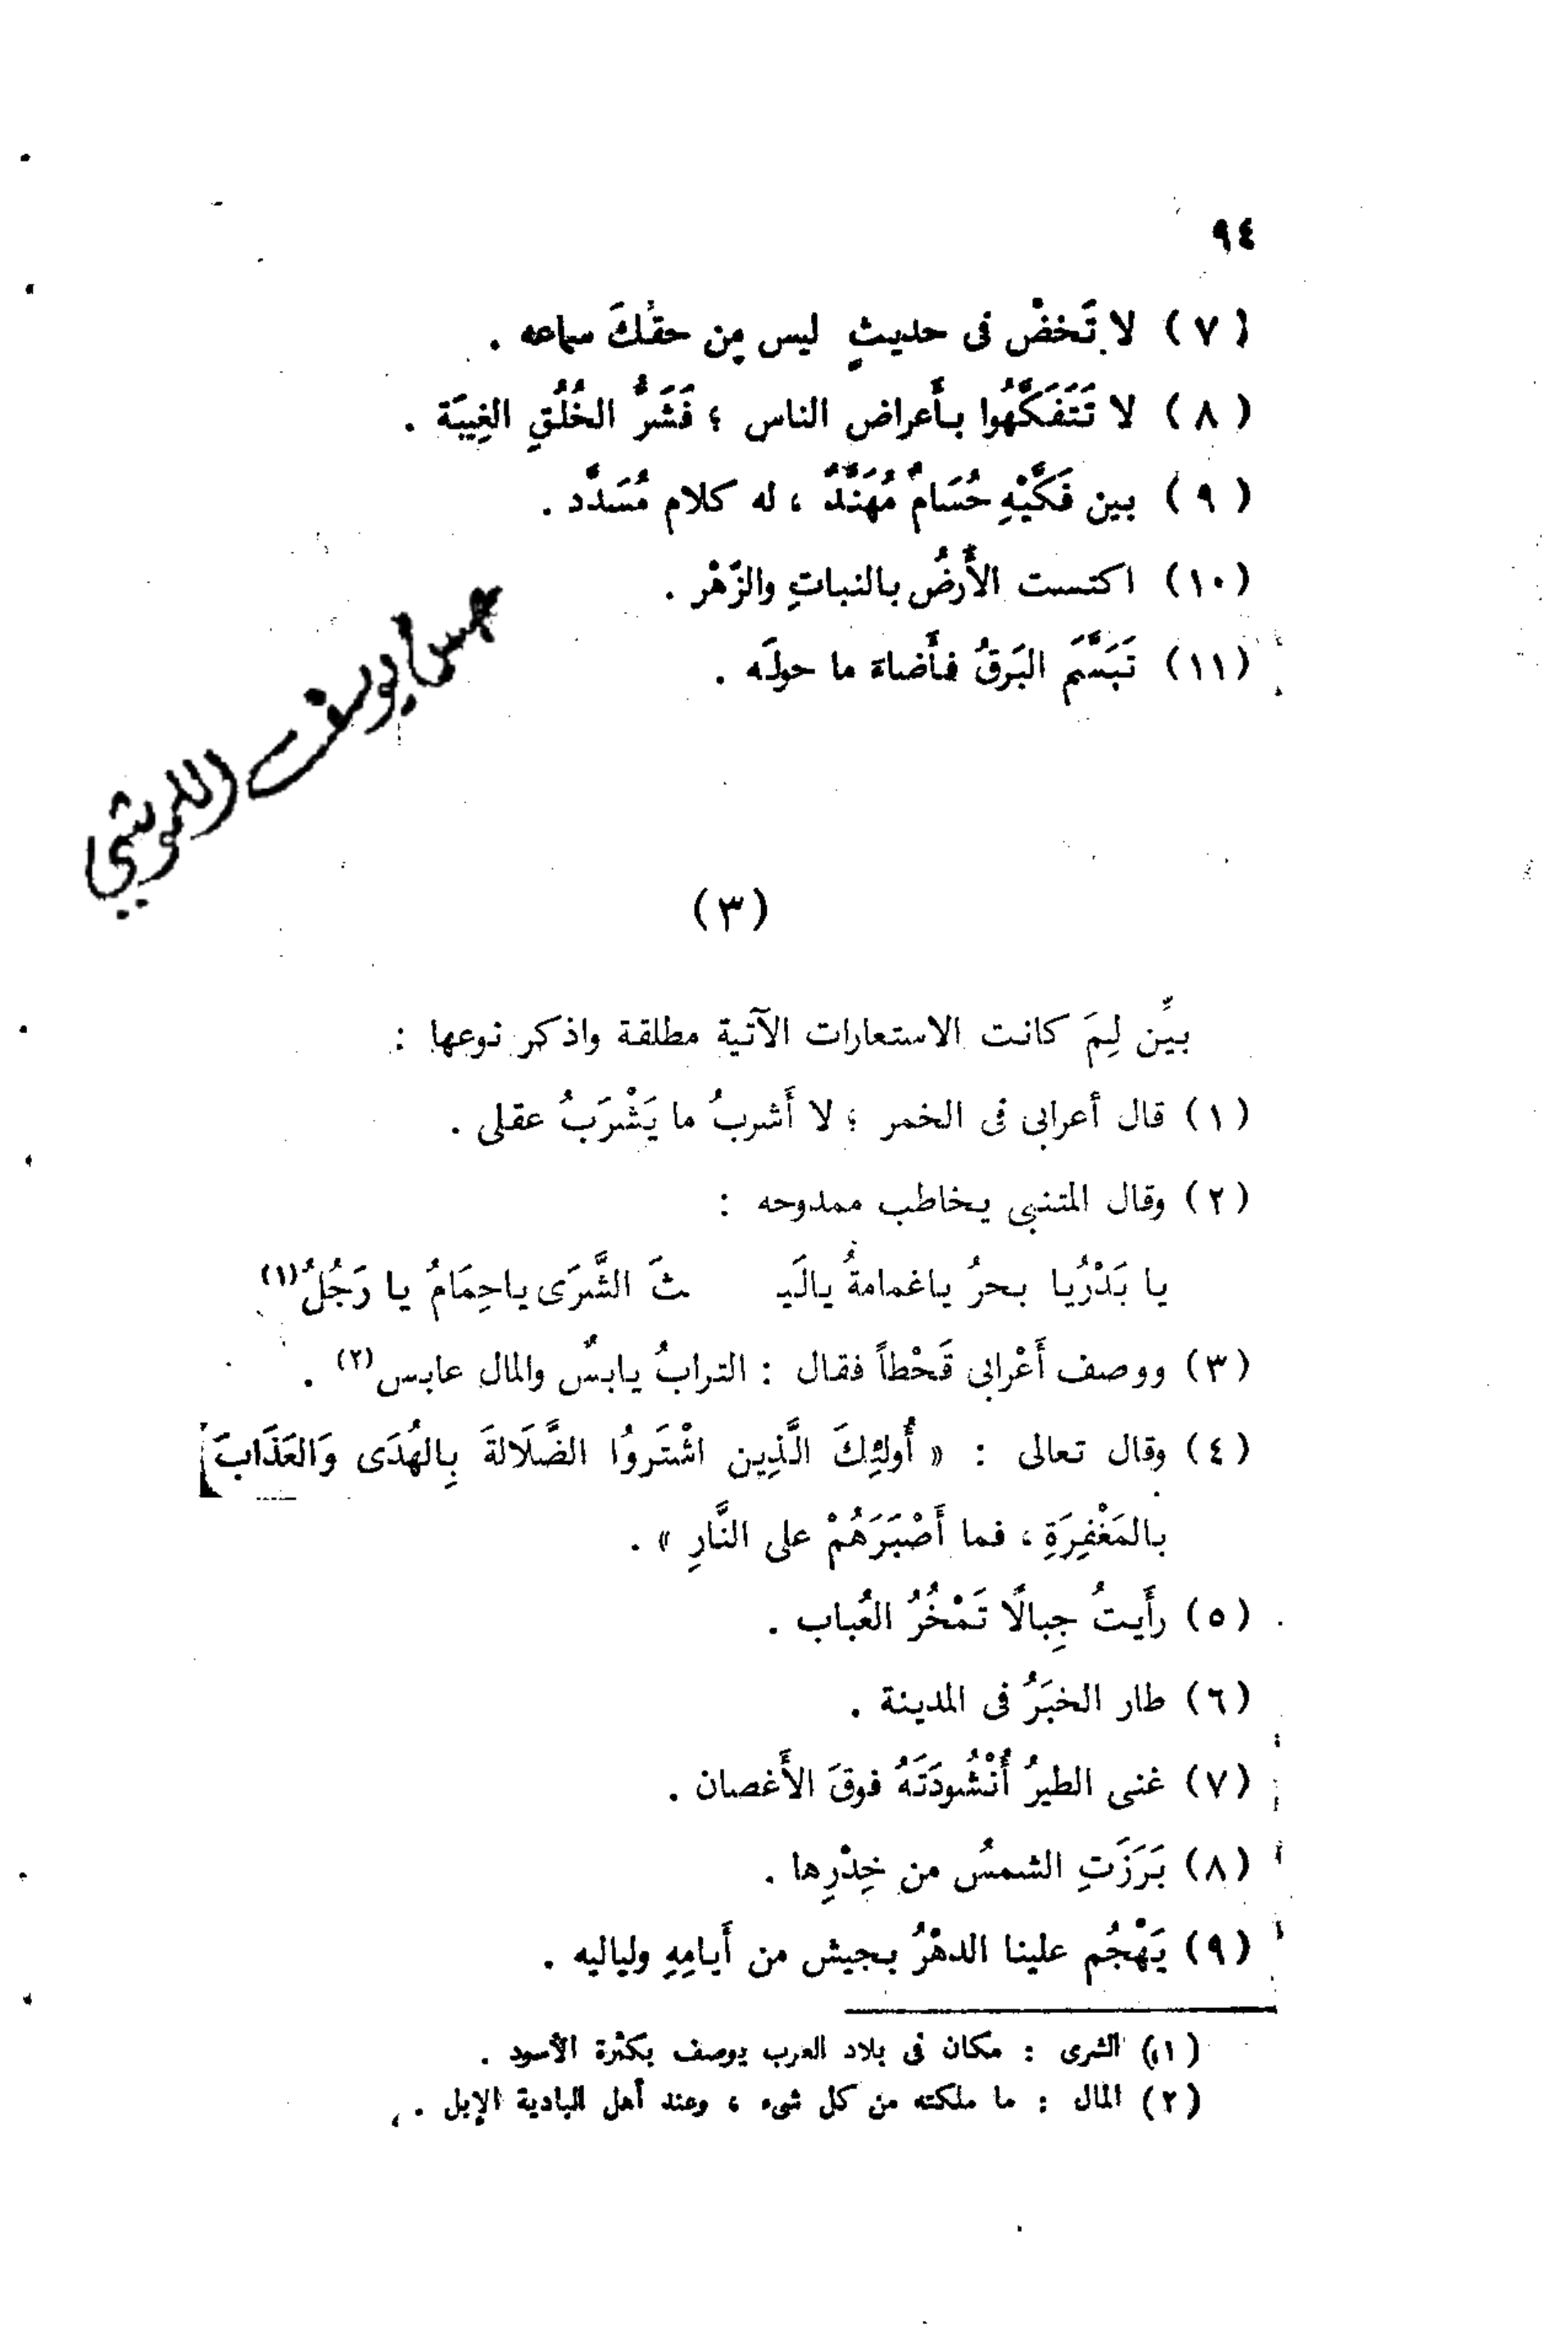 ٩٤
(٧) لا تَخضْ فى حديثٍ ليس مِن حقكَ سماعه .
(٨) لا تَتَفَكَّهُوا بأَعراض الناس ؛ فَشَرُّ الخُلُقِ الغِيبَة .
(٩) بين فَكَّيْهِ حُسَامٌ مُهَنَّدٌ ، له كلام مُسَدَّد .
(١٠) اكتست الأَرضُ بالنباتِ والزّهْر .
(١١) تَبَسَّمَ البَرقُ فأَضاءَ ما حولَه .
يوسف
(٣)
بيِّن لِمَ كانت الاستعارات الآتية مطلقة واذكر نوعها :
(١) قال أعرابى فى الخمر ؛ لا أَشربُ ما يَشْرَبُ عقلى .
(٢) وقال المتنبى يخاطب ممدوحه :
يا بَدْرُ يا بحرُ ياغمامةُ يالَيـ ـثَ الشَّرَى ياحِمَامُ يا رَجُلُ (١)
(٣) ووصف أَعْرابى قَحْطاً فقال : الترابُ يابسٌ والمال عابس (٢) .
(٤) وقال تعالى : « أُولئِكَ الَّذِين اشْتَروُا الضَّلَالةَ بِالهُدَى وَالعَذَابَ
بالمَغْفِرَةِ ، فما أَصْبَرَهُمْ على النَّارِ » .
(٥) رأَيتُ جِبالًا تَمْخُرُ العُباب .
(٦) طار الخبَرُ فى المدينة .
(٧) غنى الطيرُ أُنْشُودَتَهُ فوقَ الأَغصان .
(٨) بَرَزَتِ الشمسُ من خِدْرِها .
(٩) يَهْجُم علينا الدهْرُ بجيش من أَيامِهِ ولياليه .
(١) الشرى : مكان فى بلاد العرب يوصف بكثرة الأسود .
(٢) المال : ما ملكته من كل شىء ، وعند أهل البادية الإبل .